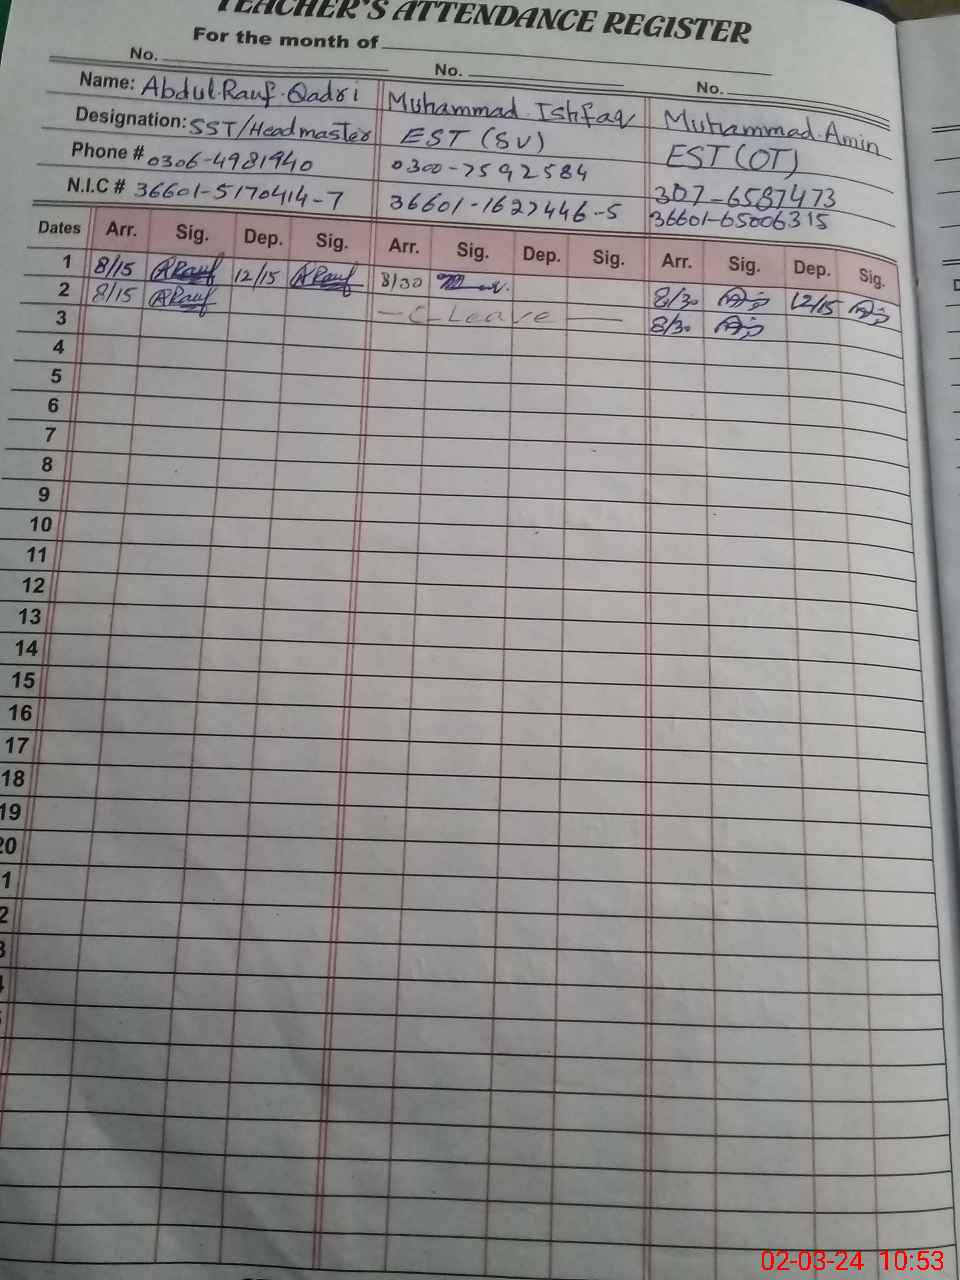 TEACHER'S ATTENDANCE REGISTER
For the month of
No. No. No.
Name: Abdul Rauf Qadri Muhammad Ishfaq Muhammad Amin
Designation: SST/Headmaster EST (SV) EST (OT)
Phone # 0306-4981940 0300-7592584 307-6587473
N.I.C # 36601-5170414-7 36601-1627446-5 36601-65006315
Dates Arr. Sig. Dep. Sig. Arr. Sig. Dep. Sig. Arr. Sig. Dep. Sig.
1 8/15 ARauf 12/15 ARauf 8/30 8/30 12/15
2 8/15 ARauf — C Leave — 8/30
3
4
5
6
7
8
9
10
11
12
13
14
15
16
17
18
19
20
1
2
3
02-03-24 10:53